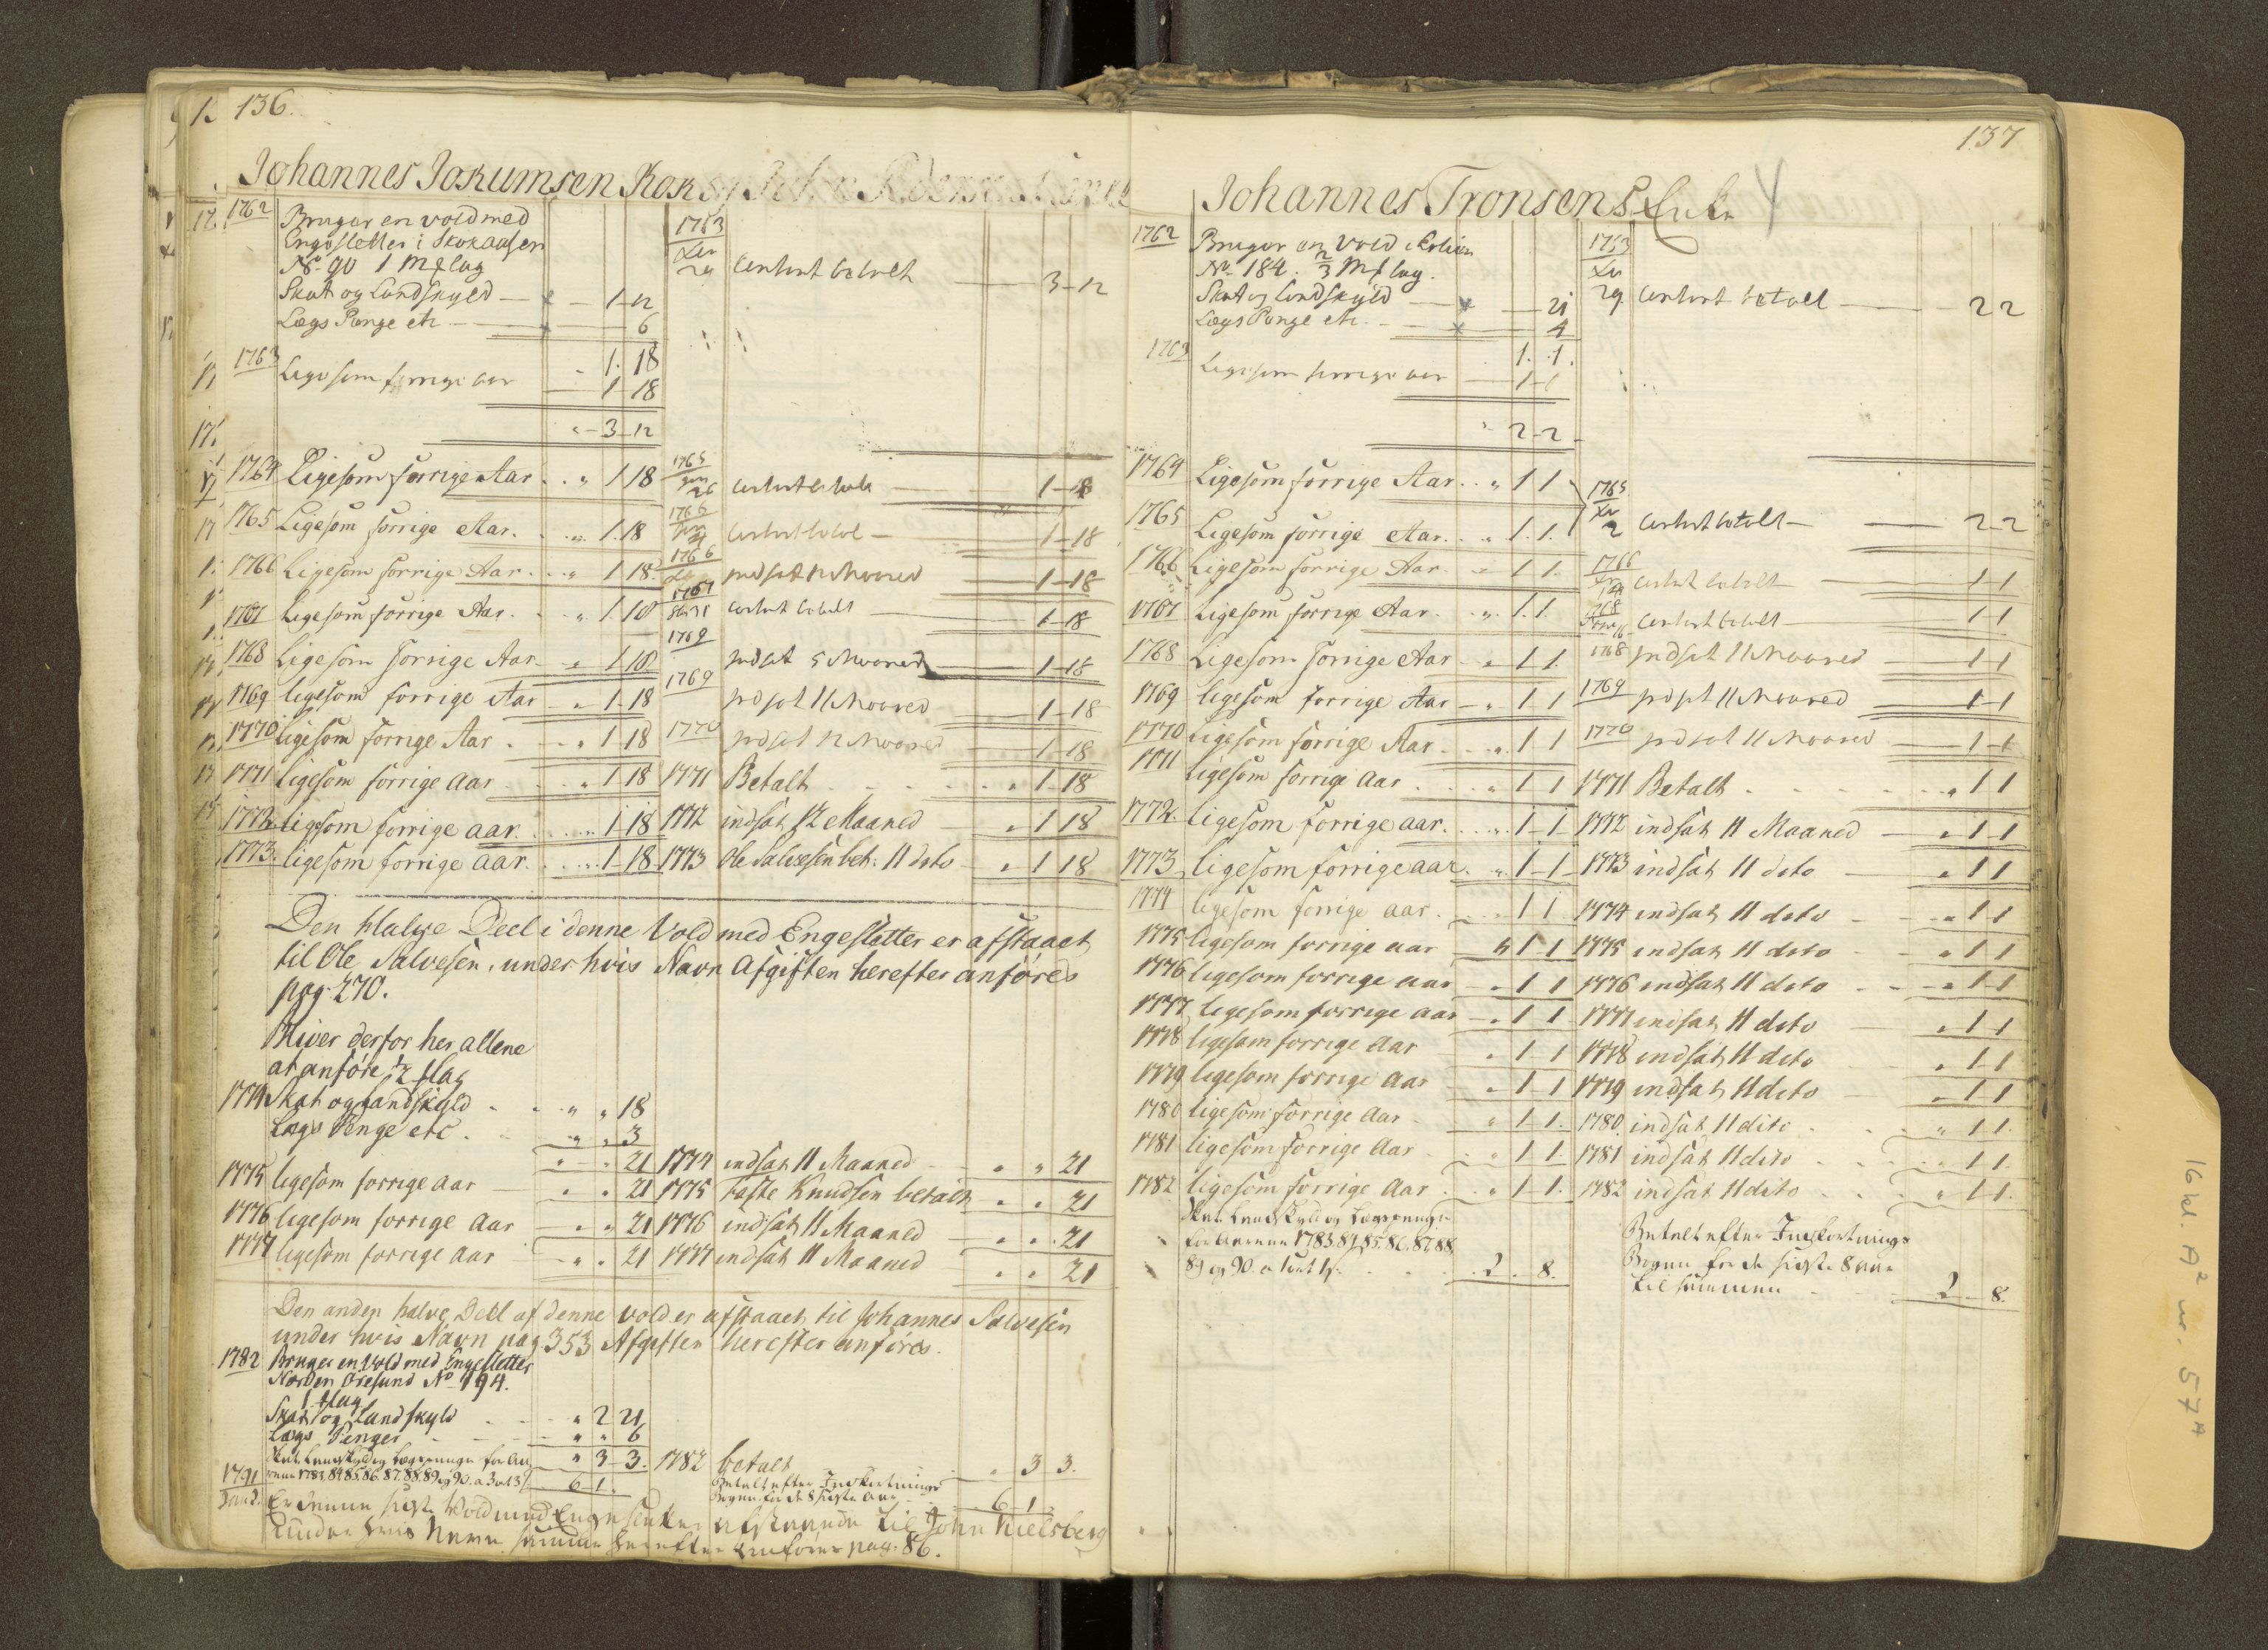 136.
Johannes Jokumsen Kok
1762 Bruger en vold med
Engesletter i Skokaasen
No. 90 1 Mf lag
Skat og Landskyld — 1-12
Lægs Penge etc — 6
1. 18
1763 Lige som forrige aar 1-18
" - 3-12
1764 Ligesom forrige Aar . . " 1 18
1765 Ligesom forrige Aar. . . " 1.18
1766 Ligesom forrige Aar . . " 1 18.
1767 Ligesom forrige Aar. . " 1.18
1768 Ligesom Forrige Aar " 1 18
1769 ligesom forrige Aar " 1-18
1770 ligesom forrige Aar . . " 1 18
1771 ligesom forrige Aar . . " 1 18
1772 ligesom forrige aar. . . . 1-18
1773. ligesom forrige aar. . . . 1-18
1763
29 betalt — 3-12
1765
26 1-18
1765
1-18
1766 indsat 12 Maaned 1-18
1767
betalt 1-18
1769
indsat 5 Maaned 1-18
1769
indsat 11 Maaned 1-18
1770 indsat 12 Maaned 1-18
1771 Betalt . . . " 1-18
1772 indsat 12 Maaned " 1 18
1773 Ole Salvesen bet: 11 dito " 1 18
Den Halve Deel i denne Vold med Engesletter er afstaaet
til Ole Salvesen, under hvis Navn Afgiften herefter anføres
pag: 270.
Bliver derfor her allene
at anføre ½ flag
1774 Skat og Landskyld . . " " 18
Lægs Penge etc. " " 3
" " 21 1774 indsat 11 Maaned " " 21
1775 ligesom forrige aar " " 21 1775 Taste Knudsen betalt " " 21
1776 ligesom forrige Aar " " 21 1776 indsat 11 Maaned " " 21
1777 ligesom forrige Aar " " 21 1777 indsat 11 Maaned " " 21
Den anden halve Deel af denne vold er afstaaet til Johannes Salvesen
under hvis Navn pag 353 Afgiften herefter anføres.
1782 Bruger en Vold med Engesletter
Norden Øresund No 194.
1 flag
Skat og Landskyld . . " 2 21
Lægs Penger " " 6
Skat Landskyld og Lægspenge for Aa- " 3-3. 1782 betalt " 3 3.
rene 1783. 84. 85. 86. 87. 88. 89 og 90. 6-1. Betalt efter Indkortnings
Begnn for de 8 sidste Aar 6-1
1791
Er denne sidste Vold med Engesletter afstaaende til John Nielsberg
under hvis Navn samme herefter anføres pag: 86.
137
Johannes Tronsen
1762 Bruger en Vold
No. 184. 2/3 Mf lag.
Skat og Landskyld — 21
Lægs Penge etc. — 4
1. 1.
1763 Lige som forrige aar — 1-1
" 2-2
1764 Ligesom forrige Aar . . " 1 1
1765 Ligesom forrige Aar. . " 1. 1.
1766 Ligesom forrige Aar. " 1 1.
1767 Ligesom forrige Aar. " 1. 1.
1768 Ligesom forrige Aar " 1 1.
1769 ligesom forrige Aar " 1 1
1770 ligesom forrige Aar . . " 1 1
1771 ligesom forrige Aar . . " 1 1
1772. ligesom forrige aar. . . " 1-1
1773 ligesom forrige aar. " 1-1
1774 ligesom forrige aar. . . 1 1
1775 ligesom forrige aar " 1 1
1776 ligesom forrige aar " 1 1
1777 ligesom forrige aar " 1 1
1778 ligesom forrige Aar " 1 1
1779 ligesom forrige Aar " 1 1
1780 ligesom forrige Aar " 1 1.
1781 ligesom forrige Aar " 1 1.
1782 ligesom forrige Aar " 1-1.
Skat Landskyld og Lægspenge
for Aarene 1783. 84. 85. 86. 87. 88.
89 og 90. 2 . 8.
1763
29 betalt — 2 2
1765
2 betalt — 2-2
1766
betalt — 1-1
1768
betalt — 1 1
1768 indsat 11 Maaned 1-1
1769 indsat 11 Maaned 1-1
1770 indsat 11 Maaned 1-1
1771 Betalt . . . " 1 1
1772 indsat 11 Maaned " 1-1
1773 indsat 11 dito " 1 1
1774 indsat 11 dito " 1 1
1775 indsat 11 dito " 1 1
1776 indsat 11 dito " 1-1
1777 indsat 11 dito " 1 1
1778 indsat 11 dito " 1 1
1779 indsat 11 dito " 1-1
1780. indsat 11 dito . . " 1 1.
1781 indsat 11 dito . . " 1 1.
1782 indsat 11 dito . . " 1-1.
Betalt efter Indkortnings
for de sidste 8 Aar
tilsammen 2 - 8.